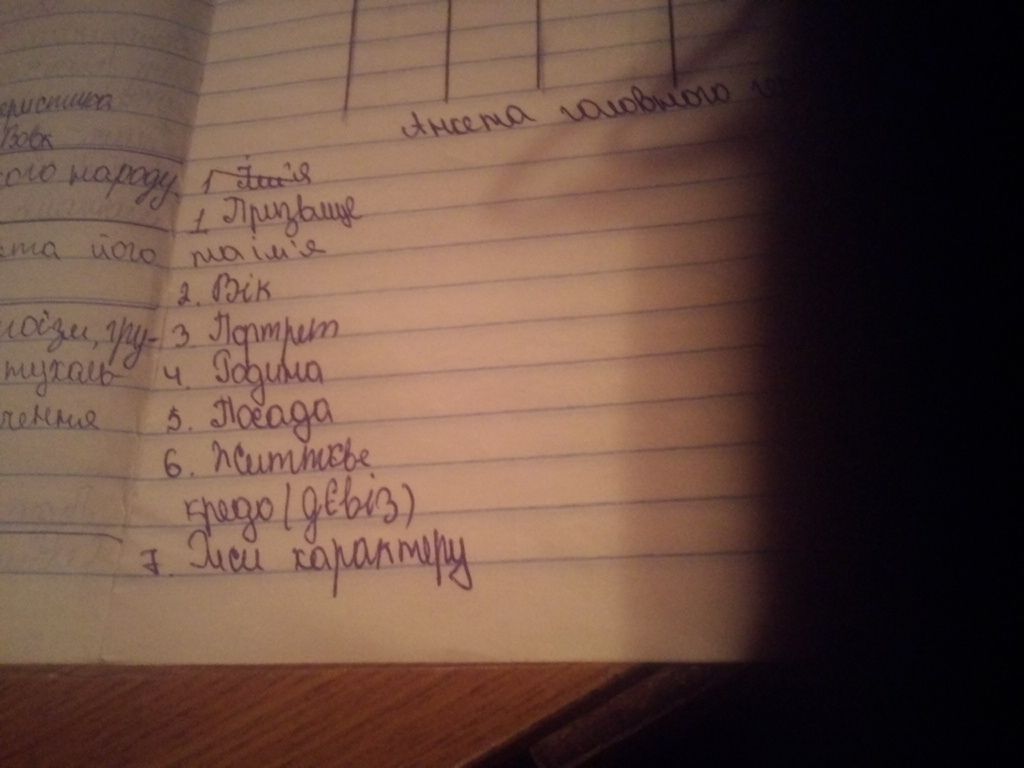 еристика
Вовк
ого народу
та його
гоїзм, гру-
тухаль
чення
Анкета головного
1 Ім'я
1. Призвище
та ім'я
2. Вік
3 Портрет
4. Родина
5. Посада
6. Життєве
кредо (дЄвіз)
7. Риси характеру